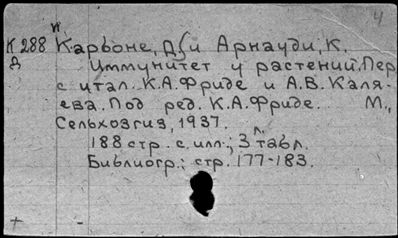 4
К 288 Карбоне, Д. и Арнауди, К.
Д Иммунитет у растений. Пер.
с итал. К.А. Фриде и А.В. Каля-
ева. Под ред. К.А. Фриде. М.,
Сельхозгиз, 1937.
188 стр. с илл.; 3 л. табл.
Библиогр.: стр. 177-183.